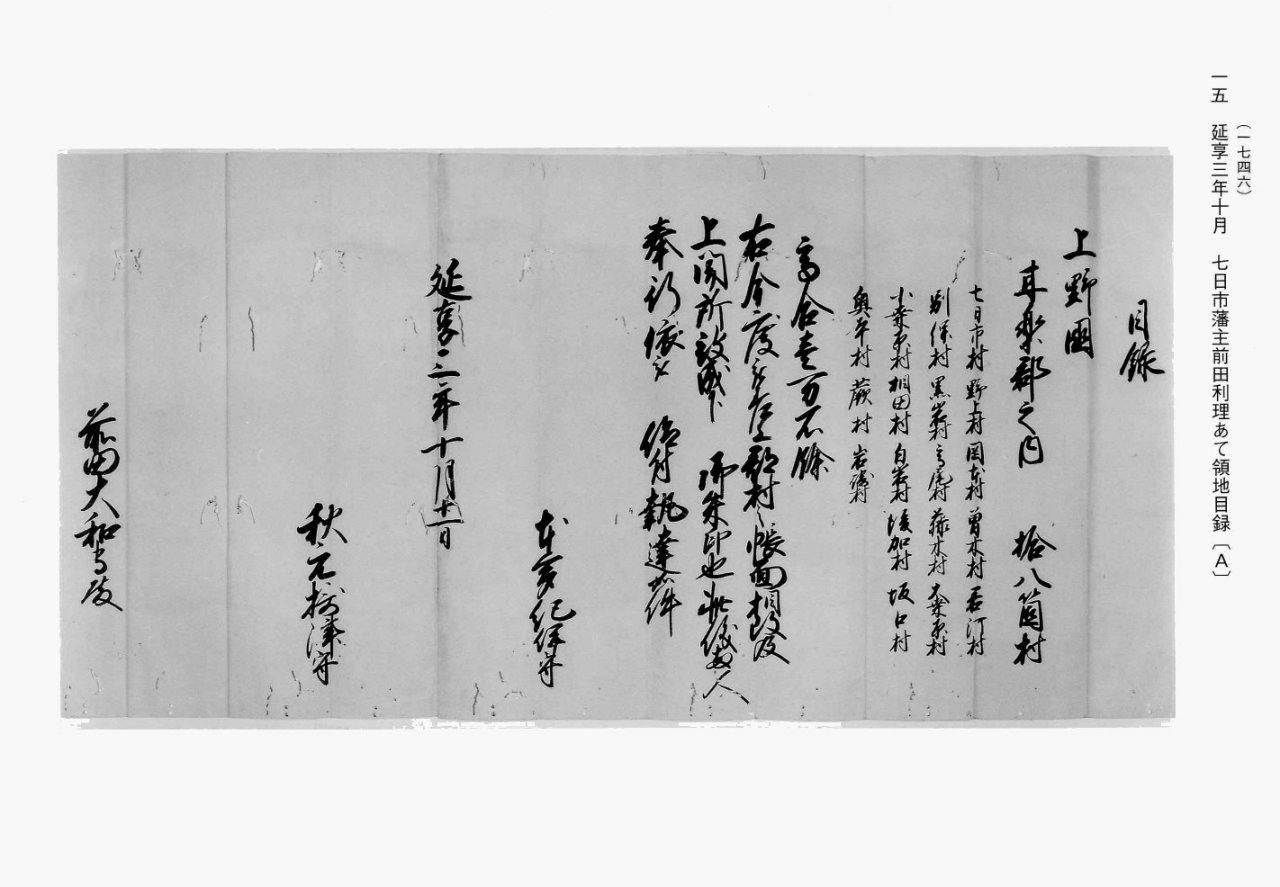 (一七四六)
一五 延享三年十月 七日市藩主前田利理あて領地目録〔A〕
目録
上野國
甘楽郡之内 拾八箇村
七日市村 野上村 岡本村 曽木村 君川村
別保村 黒岩村 高尾村 藤木村 大桑原村
小桑原村 相田村 白岩村 後加村 坂口村
奥平村 蕨村 岩崎村
高合壱万石餘
右今度被差上郡村之帳面相改及
上聞所被成下 御朱印也此儀両人
奉行依被 仰付執達如件
延享三年十月十一日
本多紀伊守
秋元摂津守
前田大和守殿